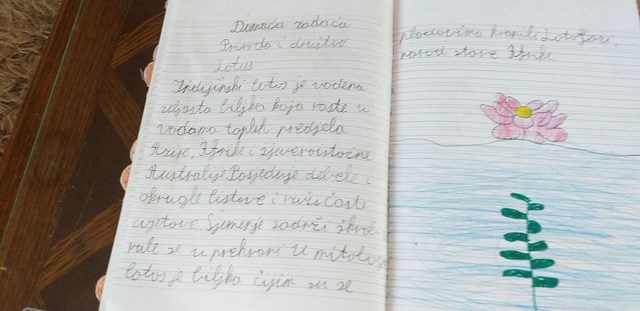 Domaća zadaća
Priroda i društvo
Lotus
Indijski lotos je vodena
zeljasta biljka koja raste u
vodama toplih predjela
Azije, Afrike i sjeveroistočne
Australije. Posjeduje debele i
okrugle listove i ružičaste
cvjetove. Sjemenje sadrži škrob
rale se u prehrani. U mitologi
lotos je biljka čijim su se
plodovima hranili Lotofazi,
narod stare Afrike.